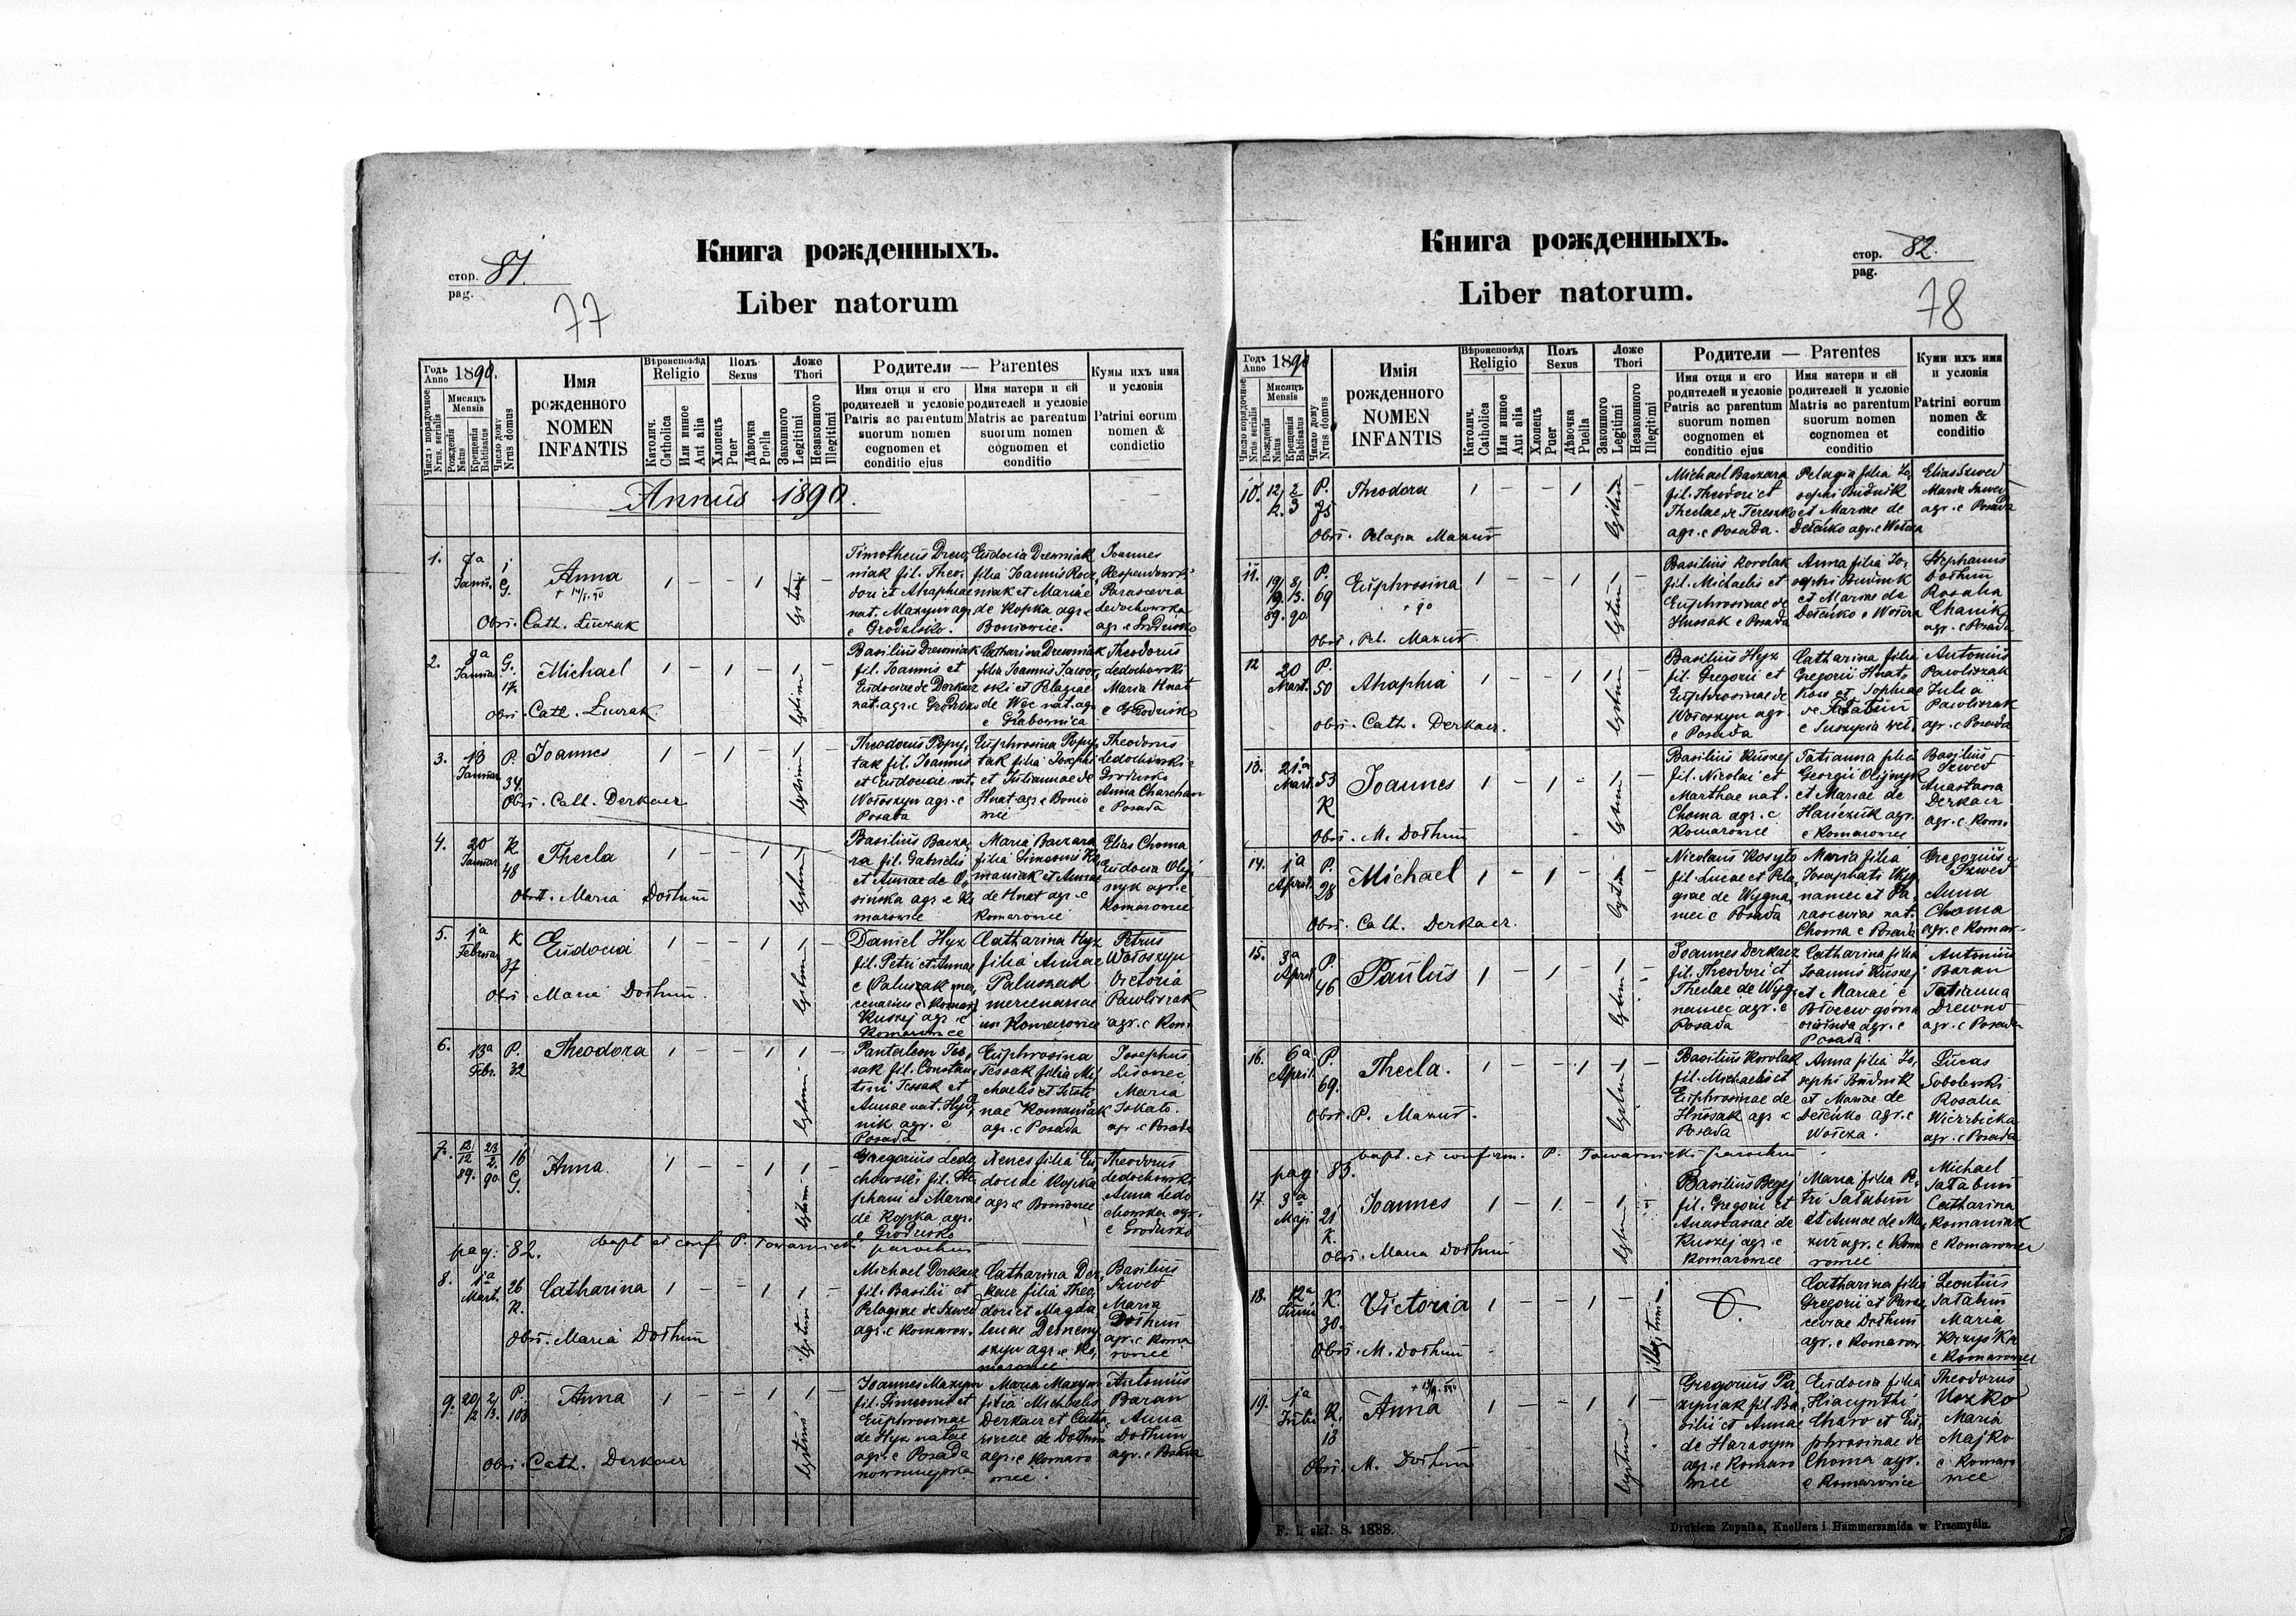 Книга рожденныхъ.
стор. 81.
pag.
77
Liber natorum
Годъ Anno 1890.
Имя рожденного NOMEN INFANTIS
Вѣроисповѣд Religio
Полъ Sexus
Ложе Thori
Родители — Parentes
Кумы ихъ имя и условія
Patrini eorum nomen & condictio
Число порядочное Nrus. serialis
Мисяцъ Mensis
Рожденія Natus
Крещенія Babtisatus
Число дому Nrus domus
Католич. Catholica
Или инное Aut alia
Хлопецъ Puer
Дѣвочка Puella
Законного Legitimi
Незаконного Illegitimi
Имя отця и его родителей и условіе
Patris ac parentum suorum nomen cognomen et conditio ejus
Имя матери и ей родителей и условіе
Matris ac parentum suorum nomen cognomen et conditio
Annus 1890.
1. 7a Januar. 1 G. Anna 1 - - 1 - legtimi
Timotheus Drewniak fil. Theodori et Ahaphiae nat. Maxym agr. e Grodzisko.
Eudocia Drewniak filia Joannis Rocz niak et Mariae de Kopka agr. e Boniowice.
Joannes
Parascevia Ledochowska agr. e Grodzisko
Obs. Cath. Luczak
2. 8a Januar. G. 17. Michael 1 - 1 - 1 - legtimi
Basilius Drewniak fil. Joannis et Eudociae de Derkacz nat. agr. e Grodzisko
Catharina Drewniak filia Joannis Jaworski et Pelagiae de Woc nat. agr. e Grabownica
Theodorus Ledochowski
Maria Hnat e Grodzisko
Obs. Cath. Luczak
3. 18 Januar P. 34. Joannes 1 - 1 - legtimi
Theodorus Popytak fil. Joannis et Eudociae nat. Wołoszyn agr. e Posada
Euphrosina Popytak filia Josephi et Julianae de Hnat agr. e Boniowice
Theodorus Ledochowski Grodzisko
Anna Charchan e Posada
Obs. Cath. Derkacz
4. 20 Januar K. 48 Thecla 1 - - 1 - legtimi
Basilius Baczara fil. Gabrielis et Annae de Osinska agr. e Komarowice
Maria Baczara filia Simeonis Komaniak et Annae de Hnat agr. e Komarowice
Elias Choma
Eudocia Olijnyk agr. e Komarowice
Obs. Maria Dołhun
5. 1a Februar K 37 Eudocia 1 - - 1 - legtimi
Daniel Hyz fil. Petri et Annae e Paluszak mercenarius Komar.
Kuszej agr. e Komarowice
Catharina Hyz filia Annae Paluszak mercenariae in Komarowice
Petrus Wołoszyn
Victoria Pawliszak agr. e Kom.
Obs. Maria Dołhun.
6. 13a Febr. P. 32 Theodora 1 - - 1 1 - legtimi
Panteleon Tessak fil. Constantini Tessak et Annae nat. Hydnik agr. e Posada
Euphrosina Tessak filia Michaelis et Justinae Komaniak agr. e Posada
Josephus Lisowiec
Maria Iskało. agr. e Posada
7. 12/12 89. 23/2. 90. 16 G. Anna. 1 - - 1 1 - legtimi
Gregorius Ledochowski fil. Stephani et Mariae de Kopka agr. e Grodzisko
Xenes filia Eudon de Kopka agr. e Boniowice
Theodorus Ledochowski
Anna Ledochowska agr. e Grodzisko
pag: 82. bapt. et conf. P. Towarnicki parochus
8. 1a Mart. 26 K. Catharina 1 - - 1 1 - legtimi
Michael Derkacz fil. Basilii et Pelagiae de Szwed agr. e Komarow.
Catharina Derkacz filia Theodori et Magdalenae Demenyszyn agr. e Komarowice
Basilius Szwed
Maria Dołhun agr. e Komarowice
Obs. Maria Dołhun
9. 20/12 2/13. P. 108 Anna 1 - - 1 1 - legtimi
Joannes Maxym fil. Simeonis et Euphrosinae de Hyz natae agr. e Posada nowomiejska
Maria Maxym filia Michaelis Derkacz et Catharinae de Dołhun agr. e Komarowice.
Antonius Baran
Anna Dołhun agr. e Posada
Obs. Cath. Derkacz
Книга рожденныхъ.
стор. 82.
pag.
78
Liber natorum.
Годъ Anno 1890
Имія рожденного NOMEN INFANTIS
Вѣроисповѣд Religio
Полъ Sexus
Ложе Thori
Родители — Parentes
Куми ихъ имя и условія
Patrini eorum nomen & conditio
Число порядочное Nrus serialis
Мисяцъ Mensis
Рожденія Natus
Крещенія Babtisatus
Число дому Nrus domus
Католич. Catholica
Или инное Aut alia
Хлопецъ Puer
Дѣвочка Puella
Законного Legitimi
Незаконного Illegitimi
Имя отця и его родителей и условіе
Patris ac parentum suorum nomen cognomen et conditio ejus
Имя матери и ей родителей и условіе
Matris ac parentum suorum nomen cognomen et conditio
10. 12/2. 2/3 P. 75 Theodora 1 - - 1 legtimi -
Michael Baczara fil. Theodori et Theclae de Tereszko agr. e Posada.
Pelagia filia Josephi Budnik et Mariae de Deńko agr. e Wołcza
Elias Szwed
Maria Szwed agr. e Posada
Obs. Pelagia Mazur
11. 19/12. 89. 8/13. 90. P. 69 Euphrosina 1 - - 1 legtimi -
Basilius Korolak fil. Michaelis et Euphrosinae de Hussak e Posada
Anna filia Josephi Budnik et Mariae de Deńko e Wołcza
Stephanus Dołhun
Rosalia Chanik agr. e Posada
Obs. Pel. Mazur.
12 20 Mart. P. 50 Ahaphia 1 - - 1 legtimi -
Basilius Hyz fil. Gregorii et Euphrosinae de Wołoszyn agr. e Posada
Catharina filia Gregorii Hnatkow et Sophiae de Satabun e Suszyca wel.
Antonius Pawliszak
Julia Pawliszak agr. e Posada
Obs. Cath. Derkacz.
13. 21a Mart. 53 K Joannes 1 - 1 - legtimi
Basilius Kuszej fil. Nicolai et Marthae nat. Choma agr. e Komarowice
Tatianna filia Georgii Olijnyk et Mariae de Hańczuk agr. e Komarowice
Basilius Szwed
Anastasia Derkacz agr. e Kom.
Obs. M. Dołhun
14. 1a April. P. 28 Michael 1 - 1 - legtimi
Nicolaus Kosyło fil. Lucae et Pelagiae de Wygnaniec e Posada
Maria filia Josaphati Wygnaniec et Parasceviae nat. Choma e Posada
Gregorius Szwed
Anna Choma agr. e Komar.
Obs. Cath. Derkacz.
15. 3a April P. 46 Paulus 1 - 1 - 1 legtimi
Joannes Derkacz fil. Theodori et Theclae de Wygnaniec agr. e Posada
Catharina filia Joannis Kuszej et Mariae e Błozew górna oriunda agr. e Posada.
Antonius Baran
Tatianna Drewno agr. e Posada
16. 6a April. P. 69. Thecla. 1 - - 1 1 legtimi
Basilius Korolak fil. Michaelis et Euphrosinae de Hussak agr. e Posada
Anna filia Josephi Budnik et Mariae de Deńko agr. e Wołcza.
Lucas Sobolewski
Rosalia Wierzbicka agr. e Posada
Obs. P. Mazur.
bapt. et confirm. P. Towarnicki parochus
pag. 83.
17. 3a Maji 21 K. Joannes 1 - 1 - 1 legtimi
Basilius Begej fil. Gregorii et Anastasiae de Kuszej agr. e Komarowice
Maria filia Petri Satabun et Annae de Mazur agr. e Komarowice
Michael Satabun
Catharina Romaniak e Komarowice
Obs. Maria Dołhun
18. 12a Junii K. 30. Victoria 1 - - 1 - illegtimi
Catharina filia Gregorii et Parasceviae Dołhun agr. e Komarow
Leontius Satabun
Maria Krzyśka e Komarowice
Obs. M. Dołhun
19. 1a Julii K. 13 Anna 1 - - 1 1 - legtimi
Gregorius Pazyniak fil. Basilii et Annae de Harasym agr. e Komarowice
Eudocia filia Hiacynthi Charo et Euphrosinae de Choma agr. e Komarowice
Theodorus Uszko
Maria Majko e Komarowice
Obs. M. Dołhun
F. 1. skł. 8. 1888.
Drukiem Zupnika, Knollera i Hammerszmida w Przemyślu.